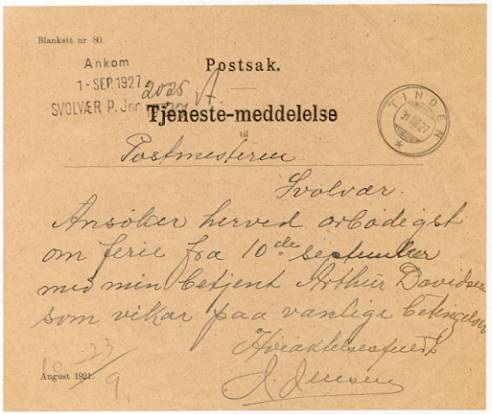 Blankett nr 80.
Ankom
1-SEP.1927
SVOLVÆR P. Jnr.
2025
Postsak.
Tjeneste-meddelelse
til
TINDEN
31 VIII 27
Postmesteren
Svolvær.
Ansøker herved ærbødigst
om ferie fra 10de september
med min betjent Arthur Davidsen
som vikar paa vanlige betingelser
Høiaktelsesfuldt
J. Jensen
23/9
August 1921.